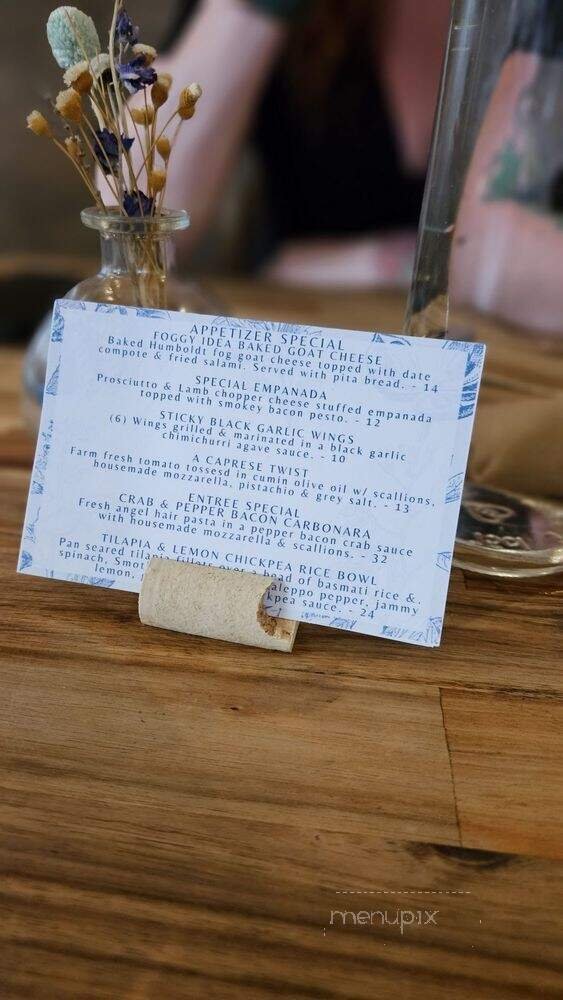 APPETIZER SPECIAL
FOGGY IDEA BAKED GOAT CHEESE
Baked Humboldt fog goat cheese topped with date
compote & fried salami. Served with pita bread. - 14
SPECIAL EMPANADA
Prosciutto & Lamb chopper cheese stuffed empanada
topped with smokey bacon pesto. - 12
STICKY BLACK GARLIC WINGS
(6) Wings grilled & marinated in a black garlic
chimichurri agave sauce. - 10
A CAPRESE TWIST
Farm fresh tomato tossesd in cumin olive oil w/ scallions,
housemade mozzarella, pistachio & grey salt. - 13
ENTREE SPECIAL
CRAB & PEPPER BACON CARBONARA
Fresh angel hair pasta in a pepper bacon crab sauce
with housemade mozzarella & scallions. - 32
TILAPIA & LEMON CHICKPEA RICE BOWL
Pan seared tilapia fillets over a bead of basmati rice &
spinach, aleppo pepper, jammy
lemon, sauce. - 24
menupix